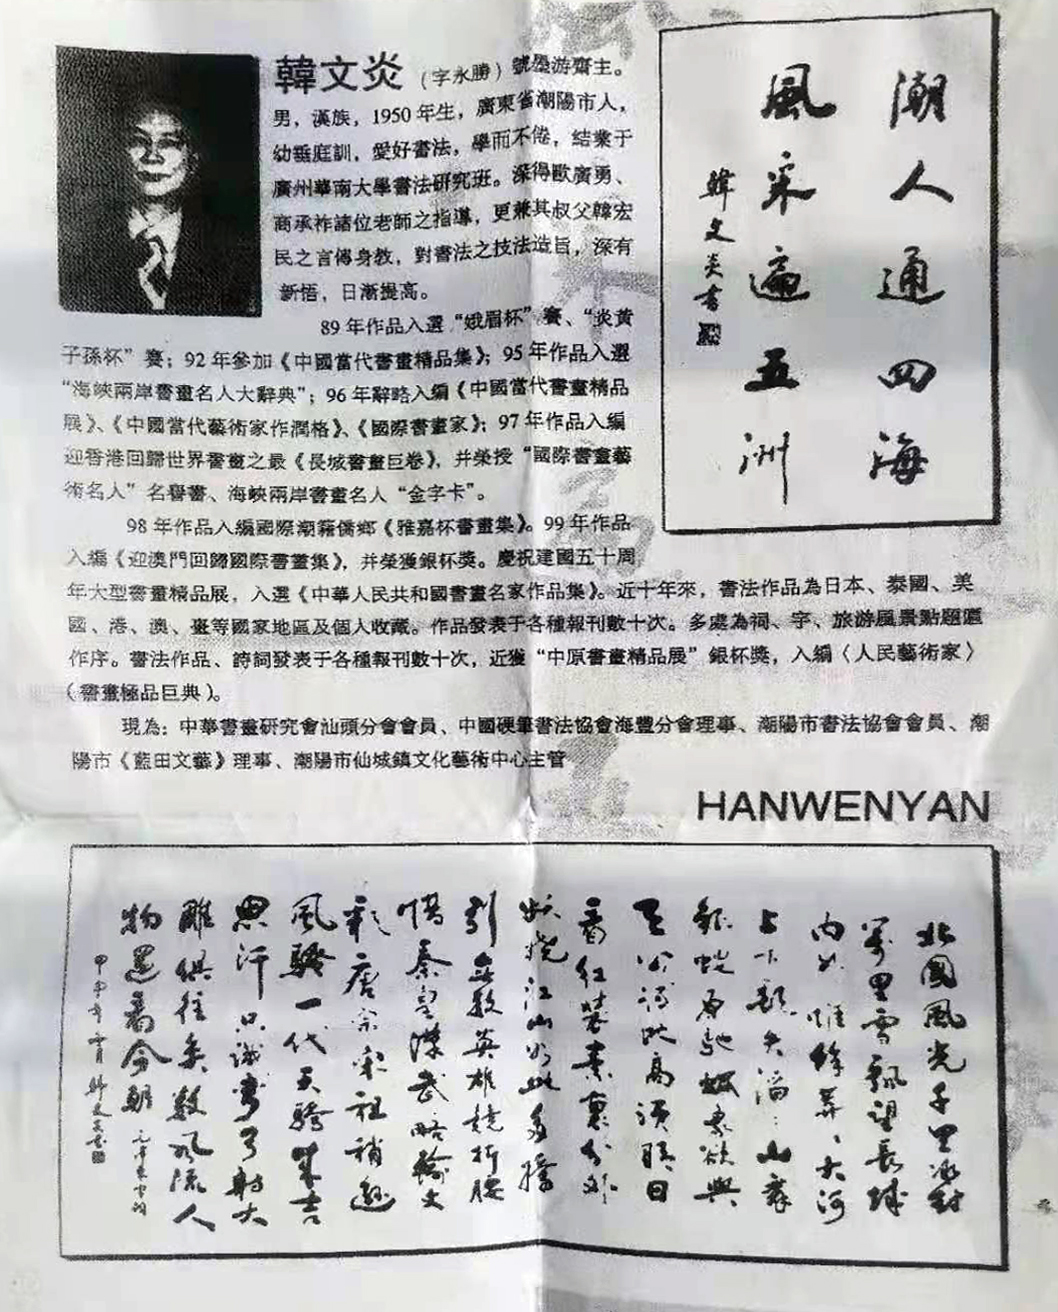 韓文炎（字永勝）號墨游齋主。
男，漢族，1950年生，廣東省潮陽市人，
幼垂庭訓，愛好書法，學而不倦，結業于
廣州華南大學書法研究班。深得歐廣勇、
商承祚諸位老師之指導，更兼其叔父韓宏
民之言傳身教，對書法之技法造旨，深有
新悟，日漸提高。
89年作品入選“娥眉杯”賽、“炎黃
子孫杯”賽；92年參加《中國當代書畫精品集》；95年作品入選
“海峽兩岸書畫名人大辭典”；96年辭略入編《中國當代書畫精品
展》、《中國當代藝術家作潤格》、《國際書畫家》；97年作品入編
迎香港回歸世界書畫之最《長城書畫巨卷》，并榮授“國際書畫藝
術名人”名譽書、海峽兩岸書畫名人“金字卡”。
98年作品入編國際潮籍僑鄉《雅嘉杯書畫集》。99年作品
入編《迎澳門回歸國際書畫集》，并榮獲銀杯獎。慶祝建國五十周
年大型書畫精品展，入選《中華人民共和國書畫名家作品集》。近十年來，書法作品為日本、泰國、美
國、港、澳、臺等國家地區及個人收藏。作品發表于各種報刊數十次。多處為祠、字、旅游風景點題匾
作序。書法作品、詩詞發表于各種報刊數十次，近獲“中原書畫精品展”銀杯獎，入編〈人民藝術家〉
（書畫極品巨典）。
現為：中華書畫研究會汕頭分會會員、中國硬筆書法協會海豐分會理事、潮陽市書法協會會員、潮
陽市《藍田文藝》理事、潮陽市仙城鎮文化藝術中心主管
潮人通四海
風采遍五洲
韓文炎書
HANWENYAN
北國風光千里冰封
萬里雪飄望長城
內外惟餘莽、大河
上下頓失滔、山舞
銀蛇原馳蠟象欲與
天公試比高須晴日
看紅裝素裹分外
妖嬈江山如此多嬌
引無數英雄競折腰
惜秦皇漢武略輸文
彩唐宗宋祖稍遜
風騷一代天驕成吉
思汗只識彎弓射大
雕俱往矣數風流人
物還看今朝
韓文炎書